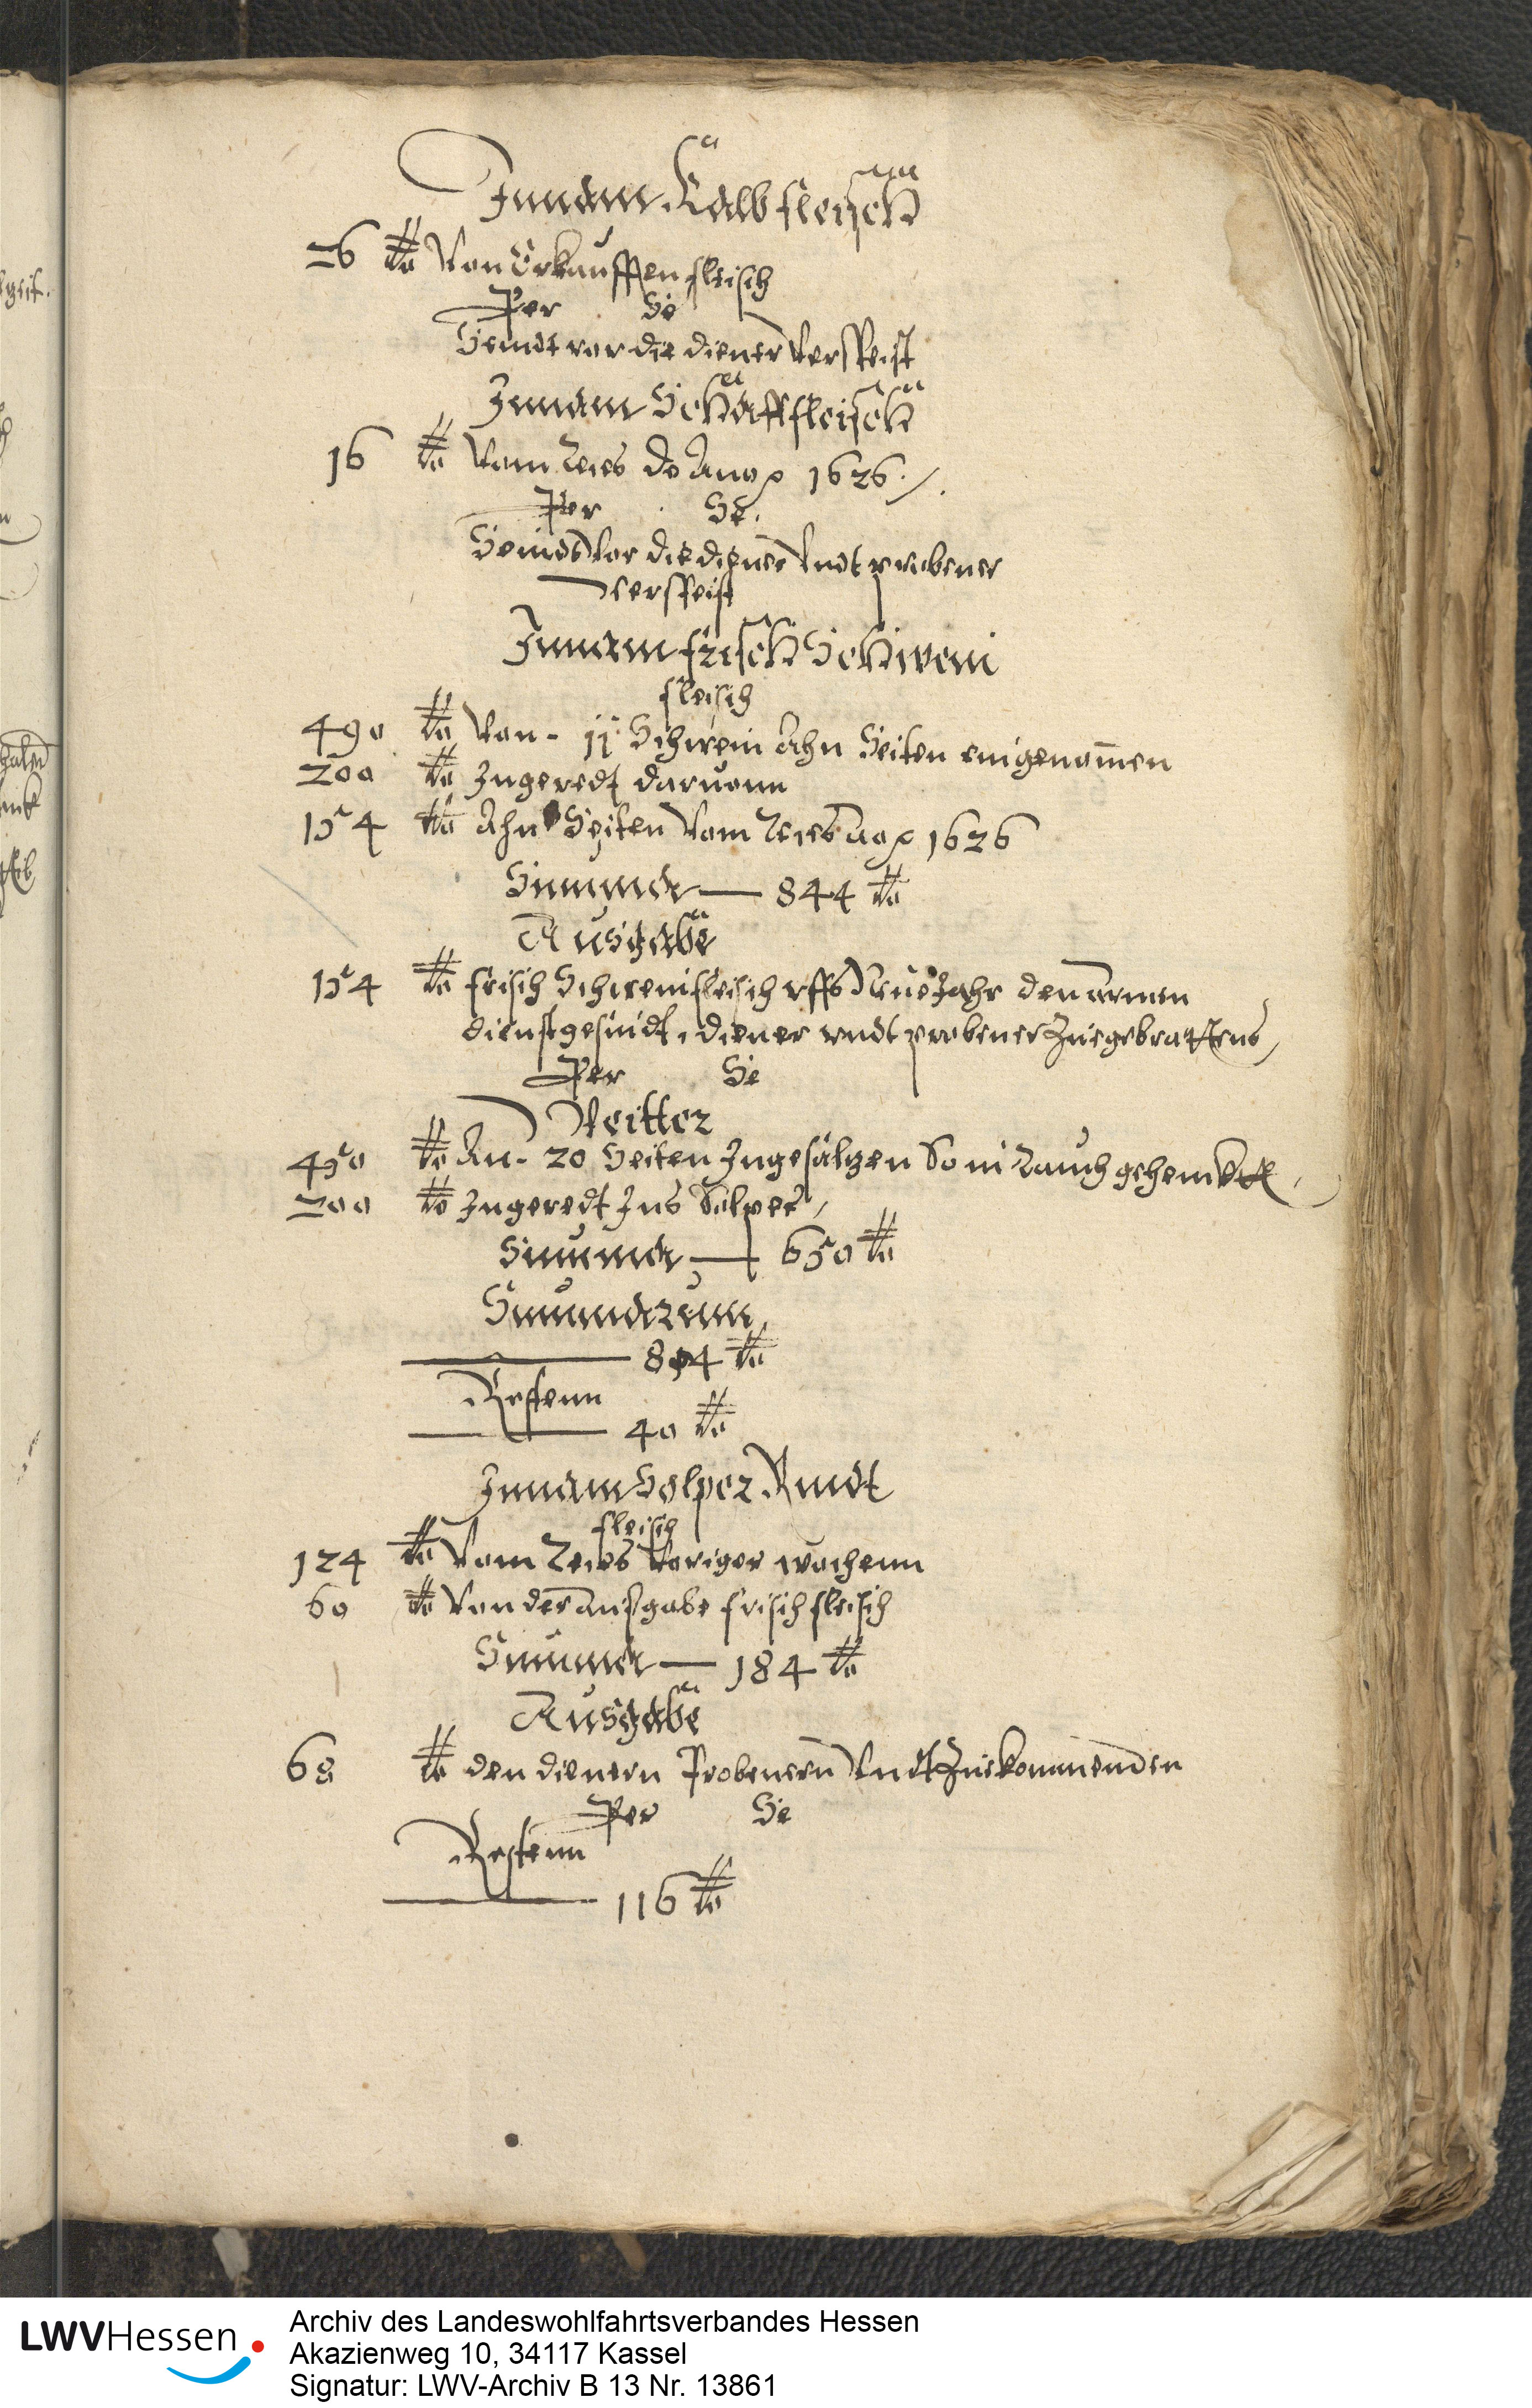 Innam Kalbfleisch
26 ℔ Von Erkaufften fleisch
Per Se
Seindt vor die diener Verspeist
Innam Schaffleisch
16 ℔ Vom Rees de Anno 1626
Per Se
Seindt Vor die diener Undt probener
Verspeist
Innam frisch Schwein
fleisch
490 ℔ Von 11 Schwein Ahn Seiten eingenommen
200 ℔ Ingeredt daruonn
154 ℔ Ahn Seiten Vom Rees ao 1626
Summa — 844 ℔
Ausgabe
154 ℔ frisch Schweinfleisch uffs Neue Jahr den armen
dienstgesindt, diener undt probener
Per Se
Weitter
450 ℔ An 20 Seiten Ingesaltzen So in Rauch gehenckt
200 ℔ Ingeredt Ins Solper
Summa — 650 ℔
Summarum
804 ℔
Restenn
40 ℔
Innam Solper Rindt
fleisch
124 ℔ Vom Rees Voriger wochenn
60 ℔ Von der ausgabe frisch fleisch
Summa — 184 ℔
Ausgabe
68 ℔ den dienern Probenern Undt Zuekommenden
Per Se
Restenn
116 ℔
LWVHessen
Archiv des Landeswohlfahrtsverbandes Hessen
Akazienweg 10, 34117 Kassel
Signatur: LWV-Archiv B 13 Nr. 13861